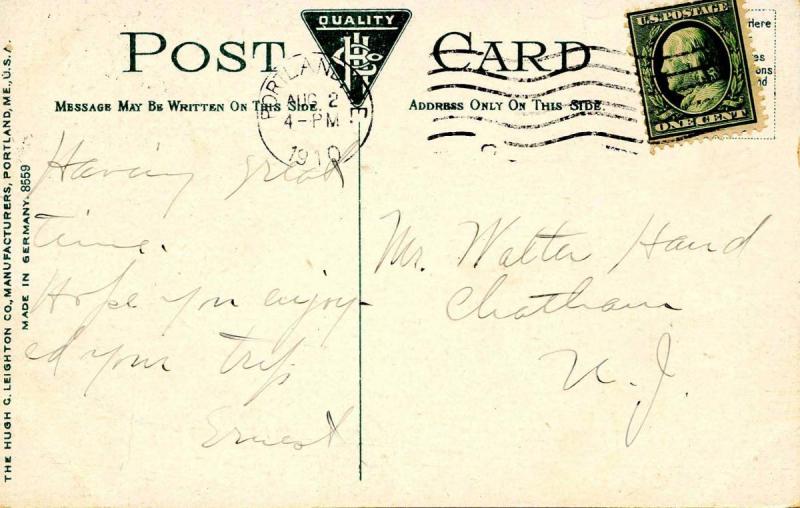 QUALITY
POST CARD
MESSAGE MAY BE WRITTEN ON THIS SIDE.
ADDRESS ONLY ON THIS SIDE.
PORTLAND, ME
AUG 2
4-PM
1910
U.S. POSTAGE
ONE CENT
Here
Having great
time.
Hope you enjoy-
ed your trip
Ernest
Mr. Walter Hand
Chatham
N. J.
THE HUGH C. LEIGHTON CO., MANUFACTURERS, PORTLAND, ME., U.S.A.
MADE IN GERMANY. 8559